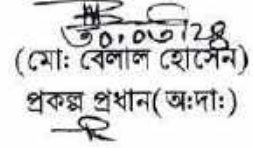 ৩০.০৬.২৪
(মো: বেলাল হোসেন)
প্রকল্প প্রধান(অ:দা:)